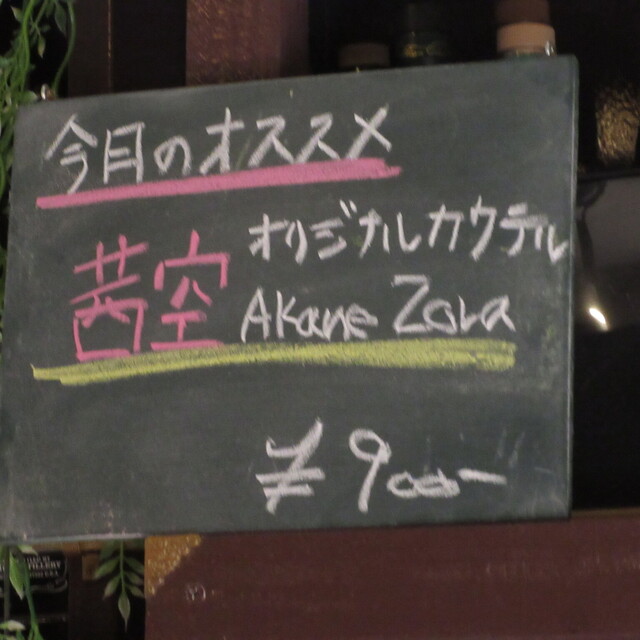 今月のオススメ
オリジナルカクテル
茜空 Akane Zora
¥900-